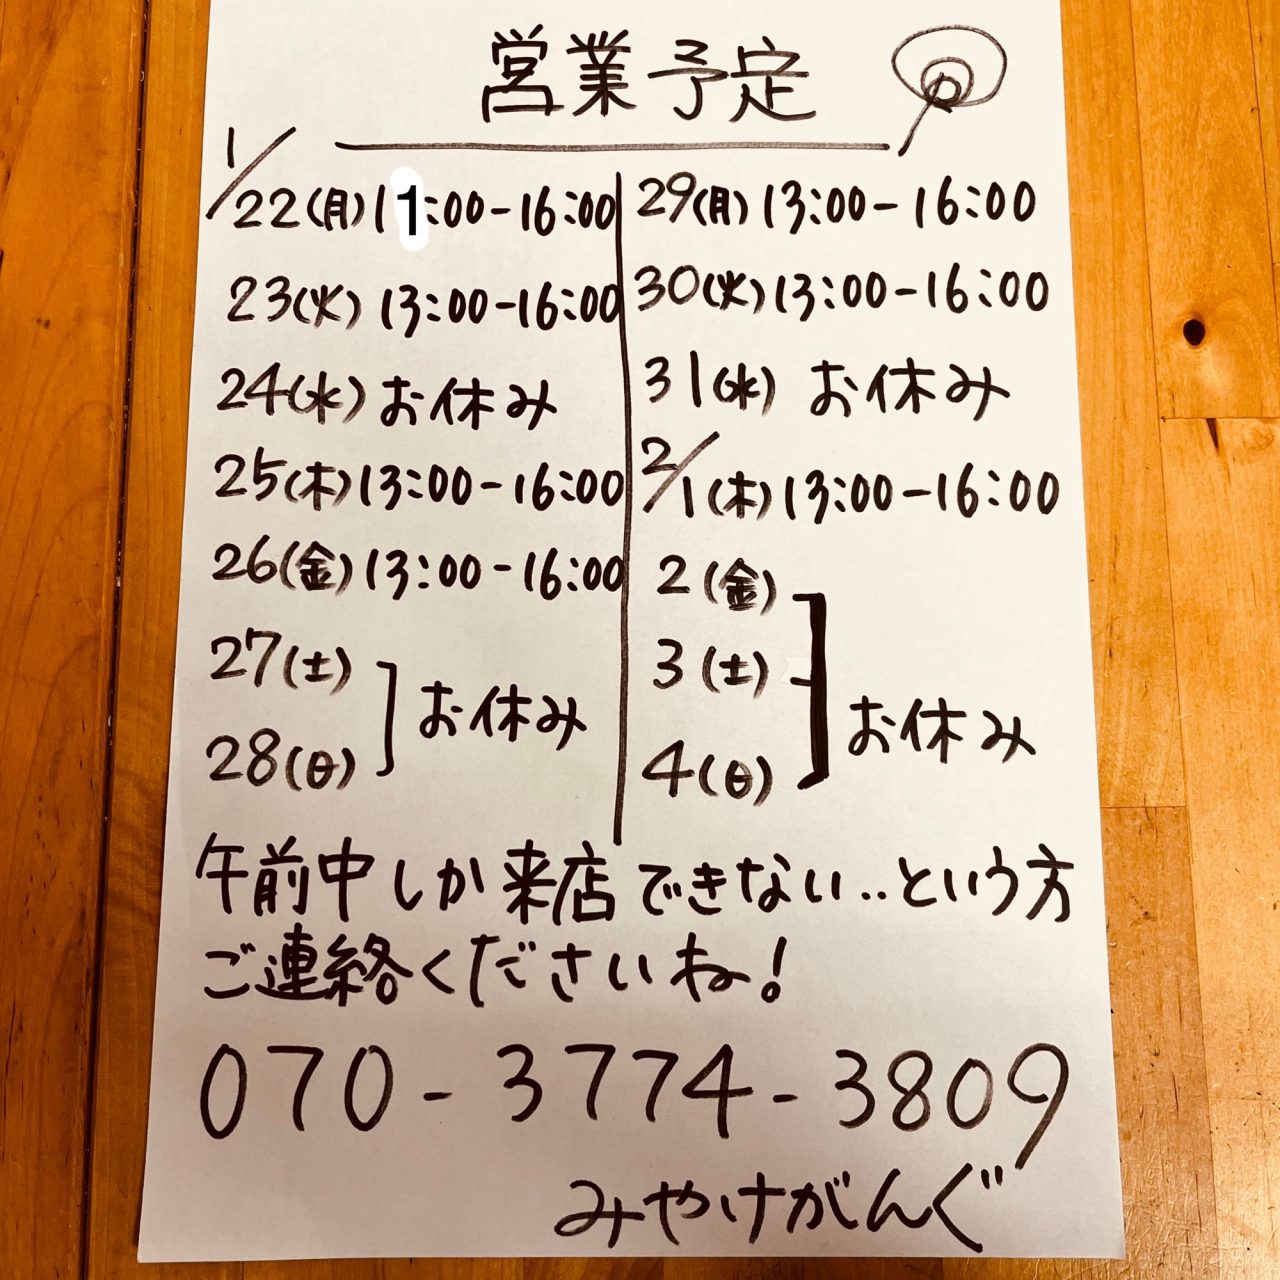 営業予定
1/22(月)11:00-16:00
23(火)13:00-16:00
24(水)お休み
25(木)13:00-16:00
26(金)13:00-16:00
27(土)
28(日)
お休み
29(月)13:00-16:00
30(火)13:00-16:00
31(水)お休み
2/1(木)13:00-16:00
2(金)
3(土)
4(日)
お休み
午前中しか来店できない..という方
ご連絡くださいね!
070-3774-3809
みやけがんぐ